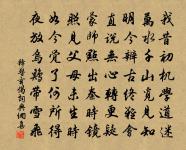 我昔初機學道迷
萬水千山覓見知
明今辨古終難會
直說無心轉更疑
蒙師點出秦時鏡
照見父母未生時
如今覺了何所得
夜放烏雞帶雪飛
釋警玄偈詞典網